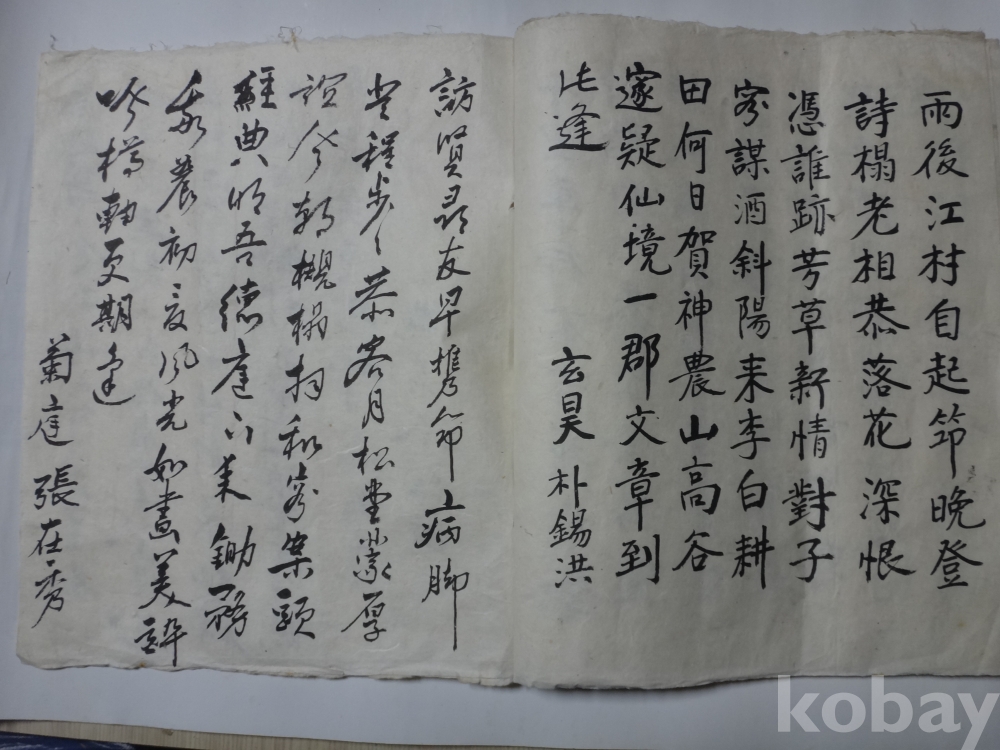 雨後江村自起笻晩登
詩榻老相恭落花深恨
憑誰跡芳草新情對子
容謀酒斜陽来李白耕
田何日賀神農山高谷
邃疑仙境一郡文章到
此逢
玄昊 朴錫洪
訪賢尋友早携笻病脚
登程步〻恭容月松堂蒙厚
誼今朝櫬榻拘和容案頭
經典明吾德庭下来鋤務
我農初夏風光如畵美醉
吟樽軸更期逢
菊庭 張在秀
kobay